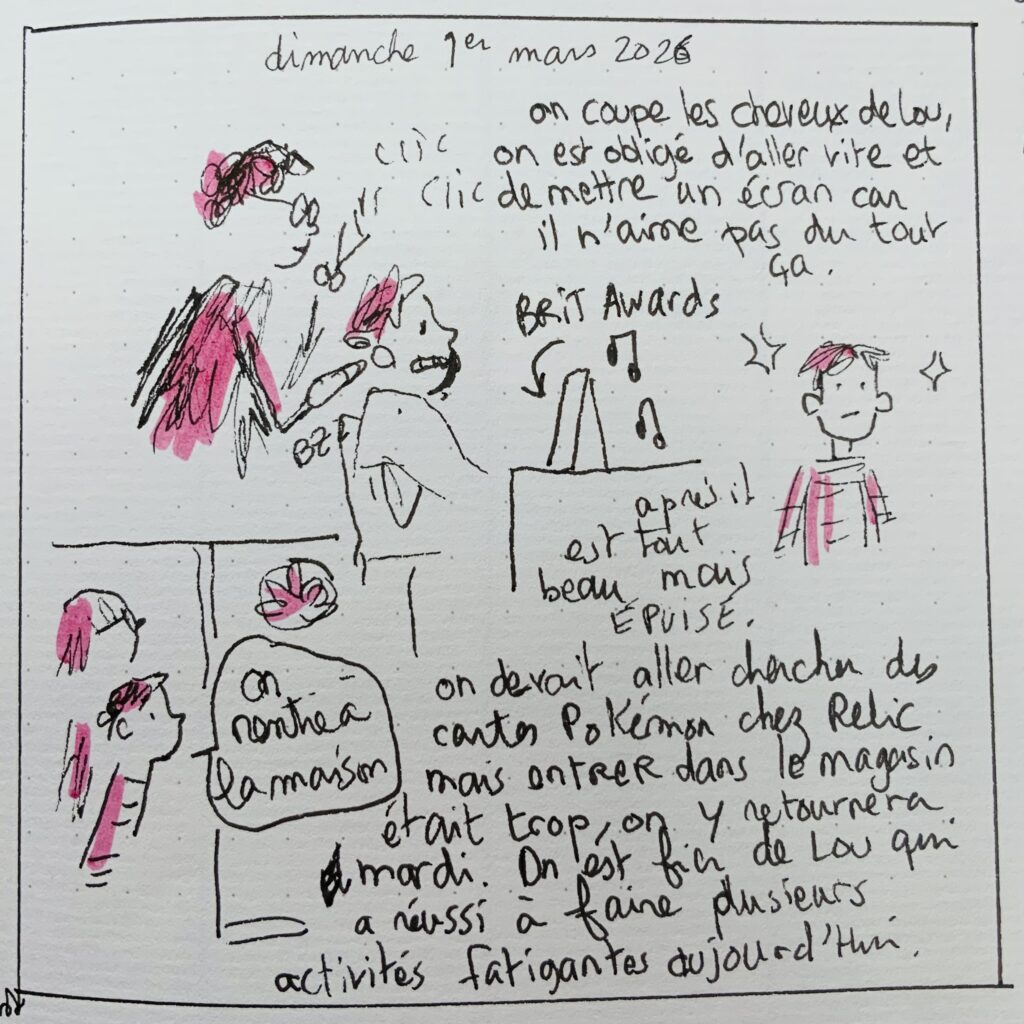 dimanche 1er mars 2026
on coupe les cheveux de Lou,
on est obligé d'aller vite et
de mettre un écran car
il n'aime pas du tout
ça.
clic
clic
BRIT AWARDS
BZZ
après il
est tout
beau mais
ÉPUISÉ.
on
rentre à
la maison
on devait aller chercher des
cartes Pokémon chez Relic
mais entRER dans le magasin
était trop, on y retournera
mardi. On est fier de Lou qui
a réussi à faire plusieurs
activités fatigantes aujourd'hui.